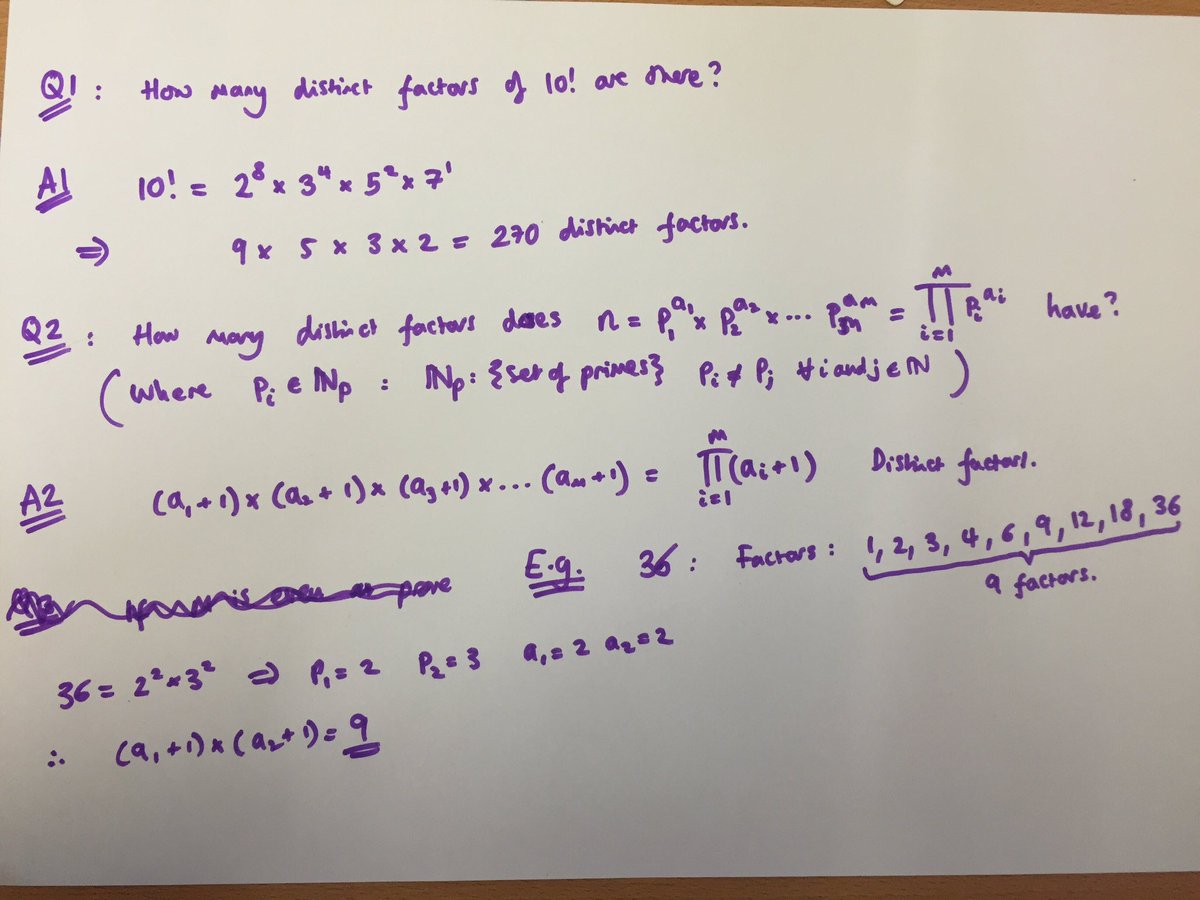 Q1 : How many distinct factors of 10! are there?
A1 10! = 2⁸ × 3⁴ × 5² × 7¹
⇒ 9 × 5 × 3 × 2 = 270 distinct factors.
Q2 : How many distinct factors does n = P₁^a₁ × P₂^a₂ × ... Pₘ^aₘ = ∏_{i=1}^{m} Pᵢ^aᵢ have?
(where Pᵢ ∈ ℕp : ℕp : {set of primes} Pᵢ ≠ Pⱼ ∀ i and j ∈ ℕ)
A2 (a₁ + 1) × (a₂ + 1) × (a₃ + 1) × ... (aₘ + 1) = ∏_{i=1}^{m} (aᵢ + 1) Distinct factors.
is even prove
E.g. 36 : Factors : 1, 2, 3, 4, 6, 9, 12, 18, 36
9 factors.
36 = 2² × 3² ⇒ P₁ = 2 P₂ = 3 a₁ = 2 a₂ = 2
∴ (a₁ + 1) × (a₂ + 1) = 9